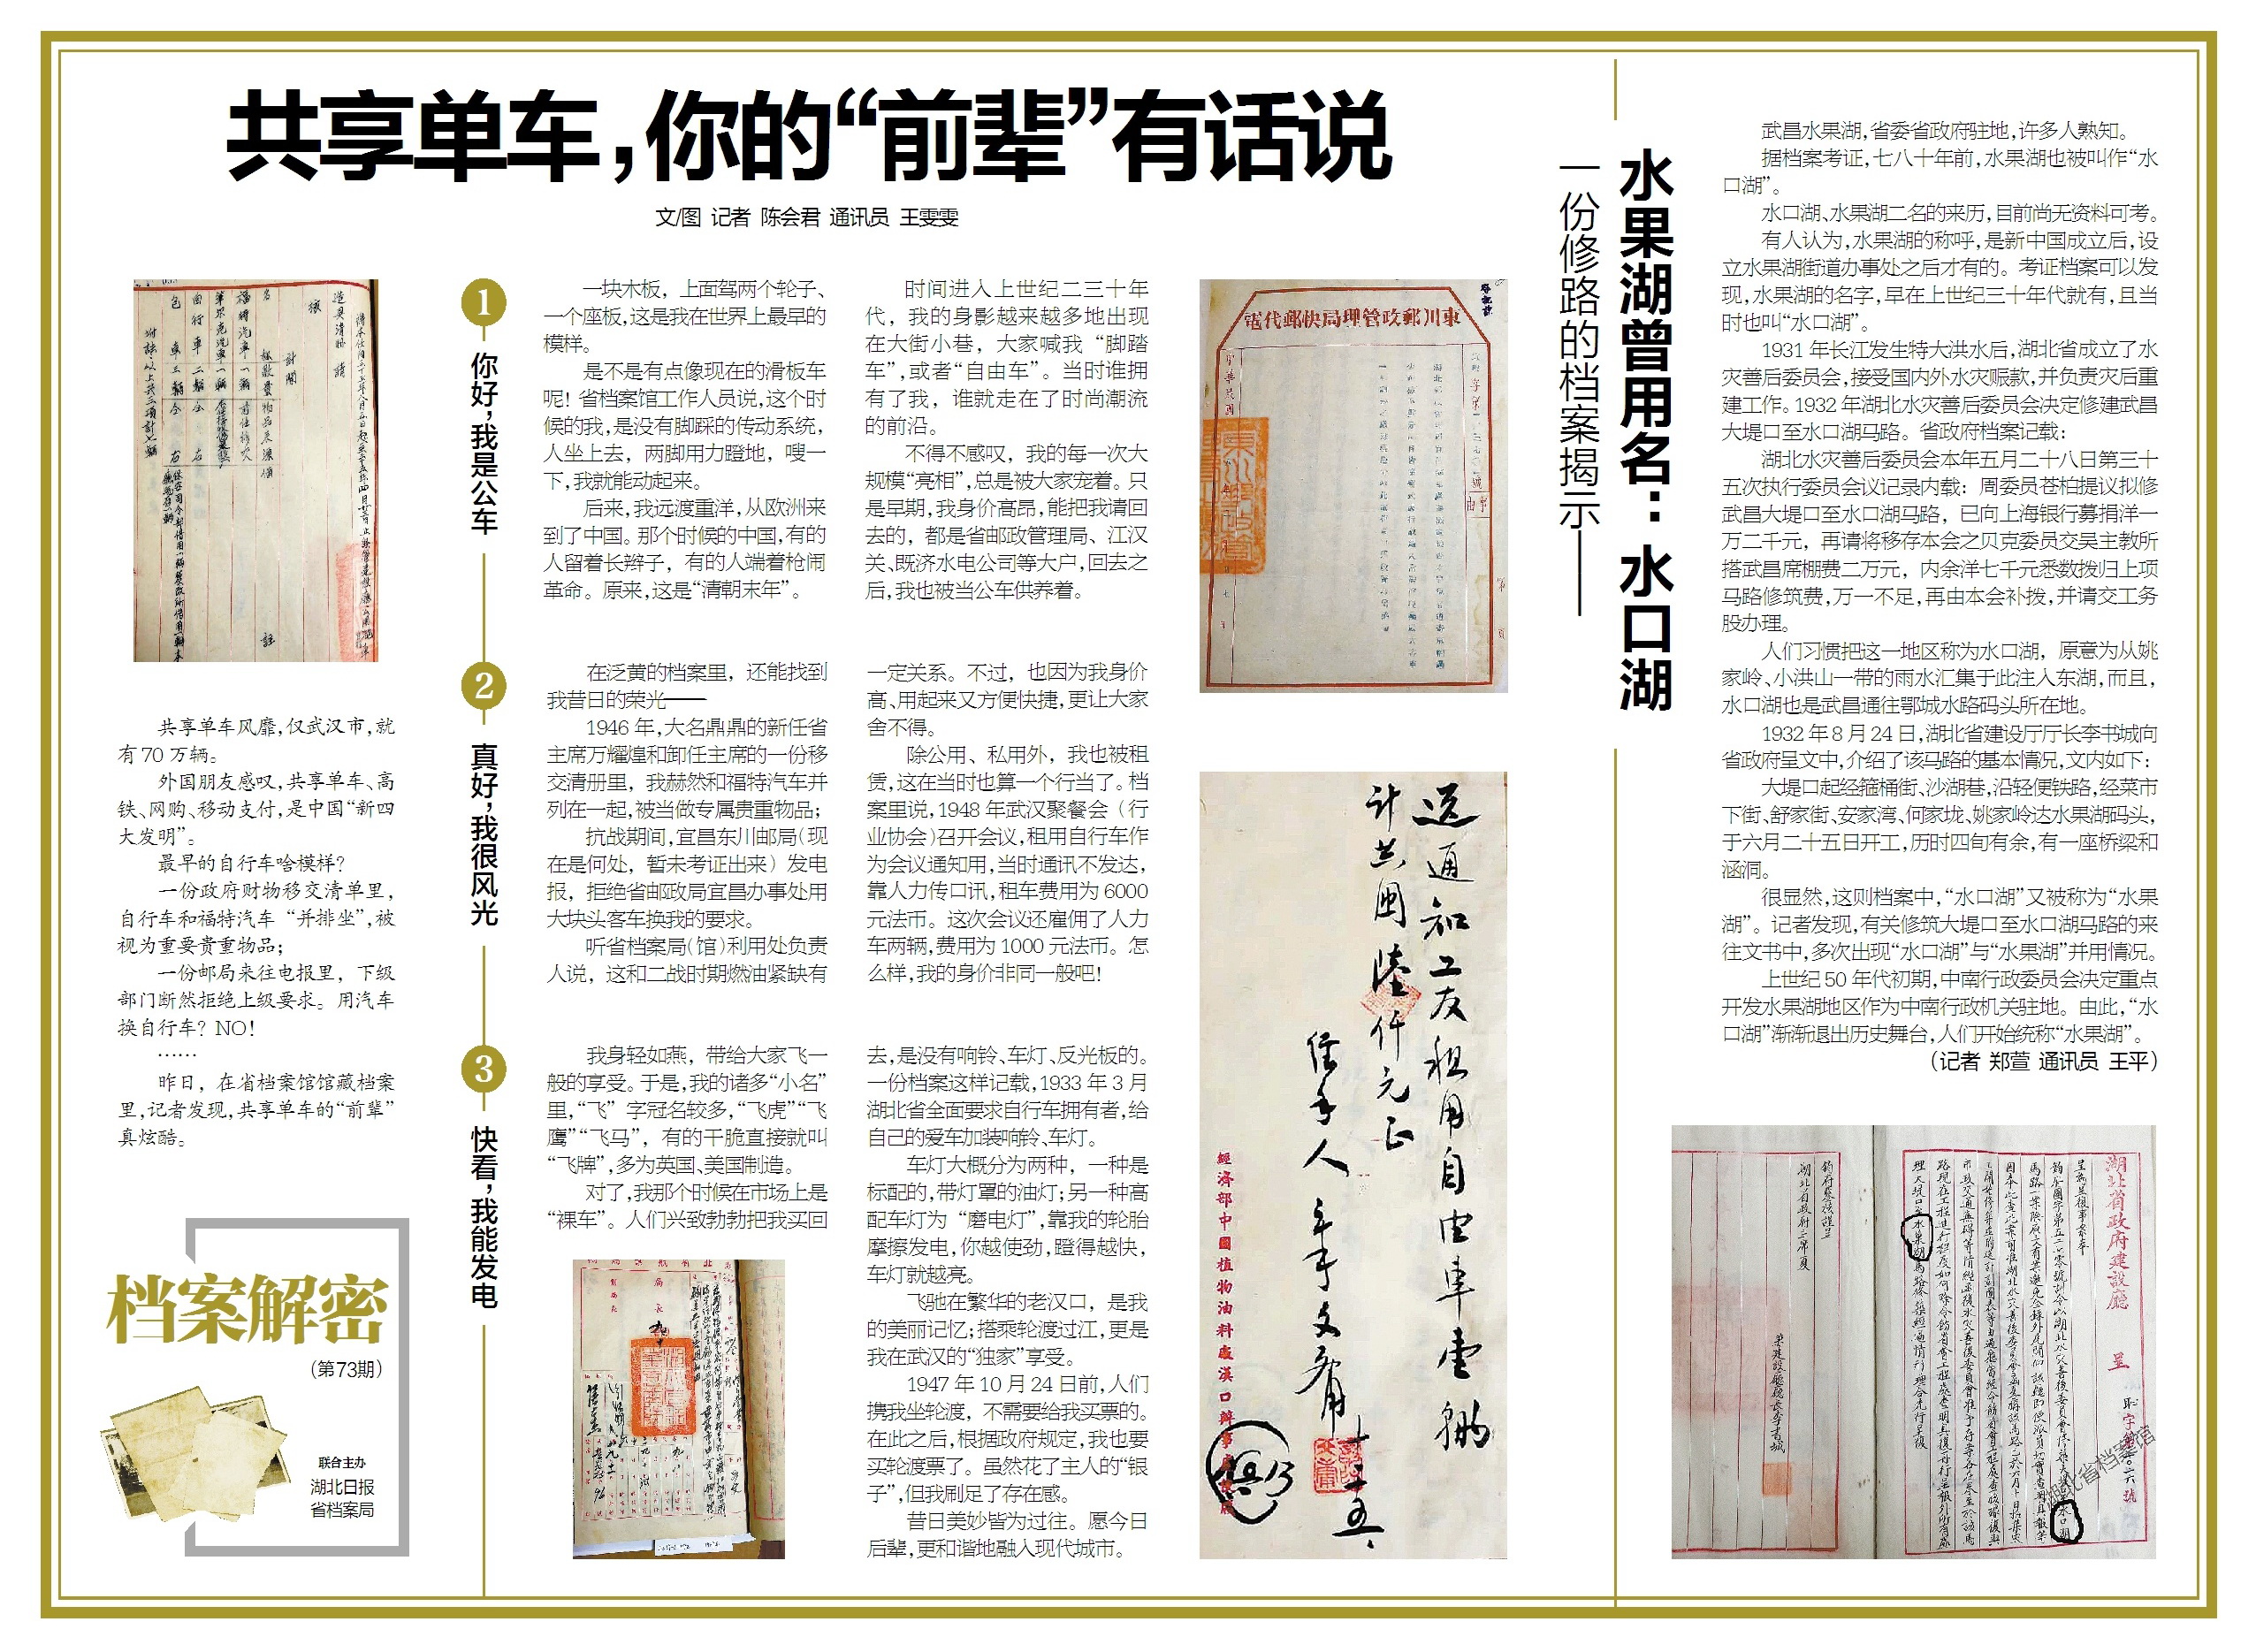 共享单车，你的“前辈”有话说
文/图 记者 陈会君 通讯员 王雯雯
共享单车风靡，仅武汉市，就
有70万辆。
外国朋友感叹，共享单车、高
铁、网购、移动支付，是中国“新四
大发明”。
最早的自行车啥模样？
一份政府财物移交清单里，
自行车和福特汽车“并排坐”，被
视为重要贵重物品；
一份邮局来往电报里，下级
部门断然拒绝上级要求。用汽车
换自行车？NO！
……
昨日，在省档案馆馆藏档案
里，记者发现，共享单车的“前辈”
真炫酷。
档案解密
（第73期）
联合主办
湖北日报
省档案局
1
你好，我是公车
一块木板，上面驾两个轮子、
一个座板，这是我在世界上最早的
模样。
是不是有点像现在的滑板车
呢！省档案馆工作人员说，这个时
候的我，是没有脚踩的传动系统，
人坐上去，两脚用力蹬地，嗖一
下，我就能动起来。
后来，我远渡重洋，从欧洲来
到了中国。那个时候的中国，有的
人留着长辫子，有的人端着枪闹
革命。原来，这是“清朝末年”。
时间进入上世纪二三十年
代，我的身影越来越多地出现
在大街小巷，大家喊我“脚踏
车”，或者“自由车”。当时谁拥
有了我，谁就走在了时尚潮流
的前沿。
不得不感叹，我的每一次大
规模“亮相”，总是被大家宠着。只
是早期，我身价高昂，能把我请回
去的，都是省邮政管理局、江汉
关、既济水电公司等大户，回去之
后，我也被当公车供养着。
2
真好，我很风光
在泛黄的档案里，还能找到
我昔日的荣光——
1946年，大名鼎鼎的新任省
主席万耀煌和卸任主席的一份移
交清册里，我赫然和福特汽车并
列在一起，被当做专属贵重物品；
抗战期间，宜昌东川邮局（现
在是何处，暂未考证出来）发电
报，拒绝省邮政局宜昌办事处用
大块头客车换我的要求。
听省档案局（馆）利用处负责
人说，这和二战时期燃油紧缺有
一定关系。不过，也因为我身价
高、用起来又方便快捷，更让大家
舍不得。
除公用、私用外，我也被租
赁，这在当时也算一个行当了。档
案里说，1948年武汉聚餐会（行
业协会）召开会议，租用自行车作
为会议通知用，当时通讯不发达，
靠人力传口讯，租车费用为6000
元法币。这次会议还雇佣了人力
车两辆，费用为1000元法币。怎
么样，我的身价非同一般吧！
3
快看，我能发电
我身轻如燕，带给大家飞一
般的享受。于是，我的诸多“小名”
里，“飞”字冠名较多，“飞虎”“飞
鹰”“飞马”，有的干脆直接就叫
“飞牌”，多为英国、美国制造。
对了，我那个时候在市场上是
“裸车”。人们兴致勃勃把我买回
去，是没有响铃、车灯、反光板的。
一份档案这样记载，1933年3月
湖北省全面要求自行车拥有者，给
自己的爱车加装响铃、车灯。
车灯大概分为两种，一种是
标配的，带灯罩的油灯；另一种高
配车灯为“磨电灯”，靠我的轮胎
摩擦发电，你越使劲，蹬得越快，
车灯就越亮。
飞驰在繁华的老汉口，是我
的美丽记忆；搭乘轮渡过江，更是
我在武汉的“独家”享受。
1947年10月24日前，人们
携我坐轮渡，不需要给我买票的。
在此之后，根据政府规定，我也要
买轮渡票了。虽然花了主人的“银
子”，但我刷足了存在感。
昔日美妙皆为过往。愿今日
后辈，更和谐地融入现代城市。
東川郵政管理局快郵代電
送通知工友租用自由車壹輛
计共國陸仟元正
經濟部中國植物油料廠漢口辦事處
水果湖曾用名：水口湖
一份修路的档案揭示——
武昌水果湖，省委省政府驻地，许多人熟知。
据档案考证，七八十年前，水果湖也被叫作“水
口湖”。
水口湖、水果湖二名的来历，目前尚无资料可考。
有人认为，水果湖的称呼，是新中国成立后，设
立水果湖街道办事处之后才有的。考证档案可以发
现，水果湖的名字，早在上世纪三十年代就有，且当
时也叫“水口湖”。
1931年长江发生特大洪水后，湖北省成立了水
灾善后委员会，接受国内外水灾赈款，并负责灾后重
建工作。1932年湖北水灾善后委员会决定修建武昌
大堤口至水口湖马路。省政府档案记载：
湖北水灾善后委员会本年五月二十八日第三十
五次执行委员会议记录内载：周委员苍柏提议拟修
武昌大堤口至水口湖马路，已向上海银行募捐洋一
万二千元，再请将移存本会之贝克委员交吴主教所
搭武昌席棚费二万元，内余洋七千元悉数拨归上项
马路修筑费，万一不足，再由本会补拨，并请交工务
股办理。
人们习惯把这一地区称为水口湖，原意为从姚
家岭、小洪山一带的雨水汇集于此注入东湖，而且，
水口湖也是武昌通往鄂城水路码头所在地。
1932年8月24日，湖北省建设厅厅长李书城向
省政府呈文中，介绍了该马路的基本情况，文内如下：
大堤口起经箍桶街、沙湖巷，沿轻便铁路，经菜市
下街、舒家街、安家湾、何家垅、姚家岭达水果湖码头，
于六月二十五日开工，历时四旬有余，有一座桥梁和
涵洞。
很显然，这则档案中，“水口湖”又被称为“水果
湖”。记者发现，有关修筑大堤口至水口湖马路的来
往文书中，多次出现“水口湖”与“水果湖”并用情况。
上世纪50年代初期，中南行政委员会决定重点
开发水果湖地区作为中南行政机关驻地。由此，“水
口湖”渐渐退出历史舞台，人们开始统称“水果湖”。
（记者 郑萱 通讯员 王平）
湖北省政府建設廳 呈